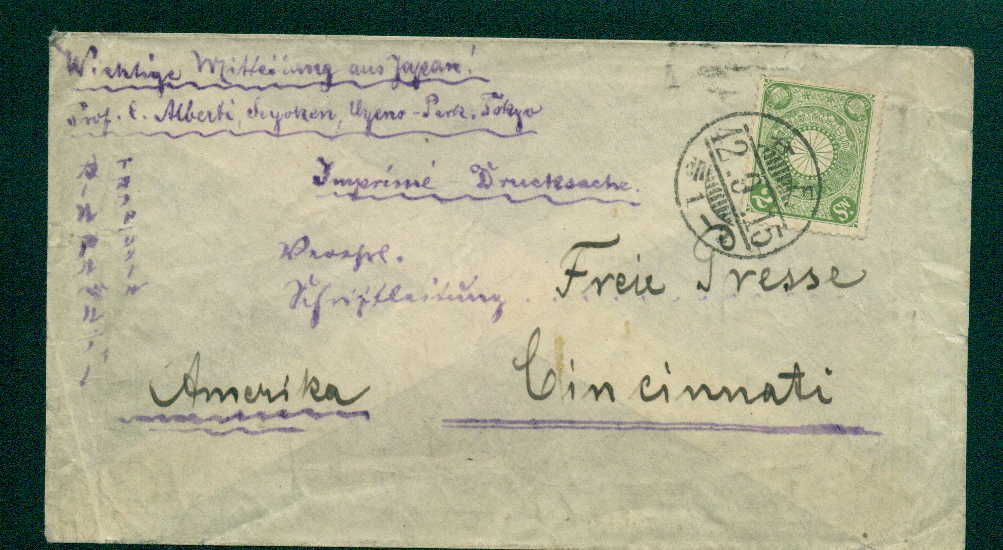 Wichtige Mitteilung aus Japan!
Prof. E. Alberti, Seyoken, Uyeno-Park, Tokyo
Imprimé Drucksache.
Verehrl.
Schriftleitung
Freie Presse
Cincinnati
Amerika
42.9.15